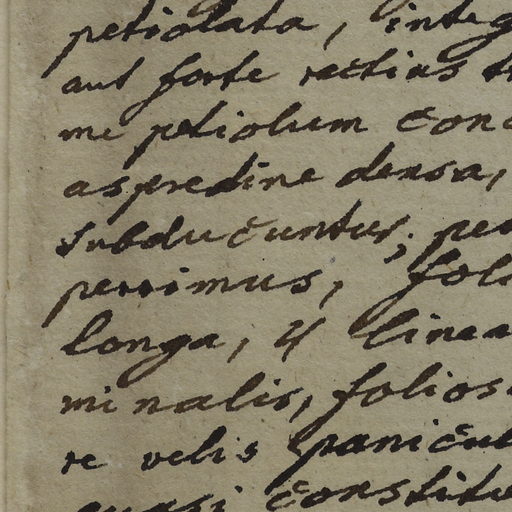 petiolata, integ
aut forte rectius t
me petiolum conc
aspredine densa,
subducuntur; pe
perrimus, fol
longa, 4 linea
minalis, folios
re velis panicul
quasi constitu